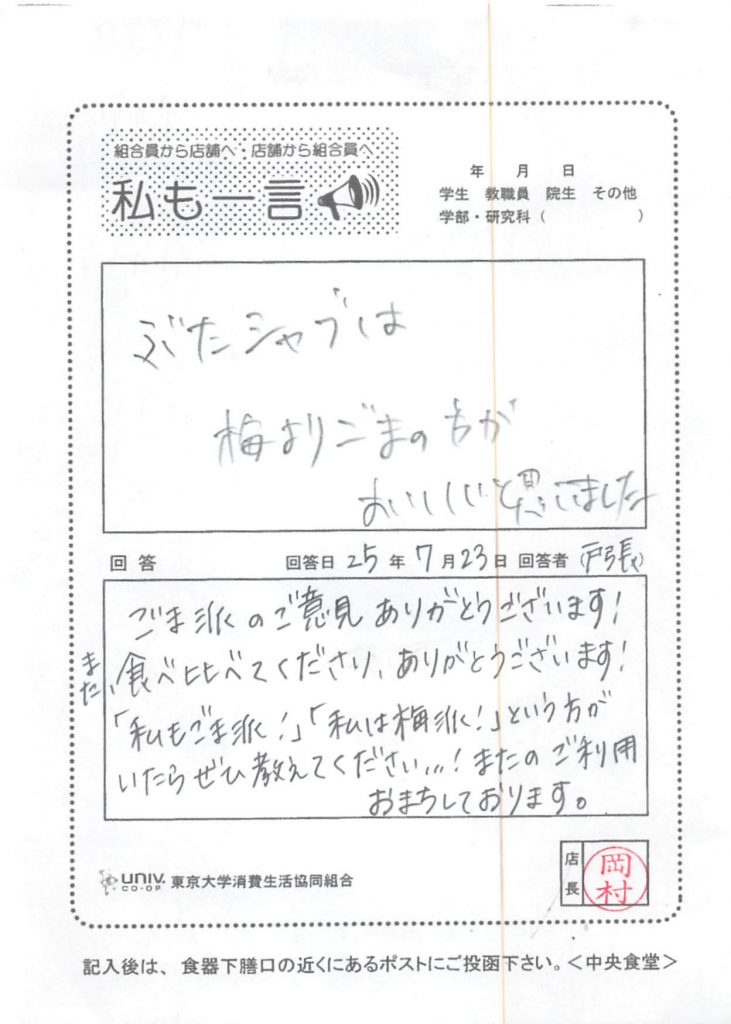 組合員から店舗へ・店舗から組合員へ
私も一言
年 月 日
学生 教職員 院生 その他
学部・研究科( )
ぶたシャブは
梅よりごまの方が
おいしいと思いました
回答 回答日 25年7月23日 回答者(戸張)
ごま派のご意見ありがとうございます!
また、食べ比べてくださり、ありがとうございます!
「私もごま派!」「私は梅派!」という方が
いたらぜひ教えてください…!またのご利用
おまちしております。
UNIV. CO-OP 東京大学消費生活協同組合
店長 岡村
記入後は、食器下膳口の近くにあるポストにご投函下さい。<中央食堂>